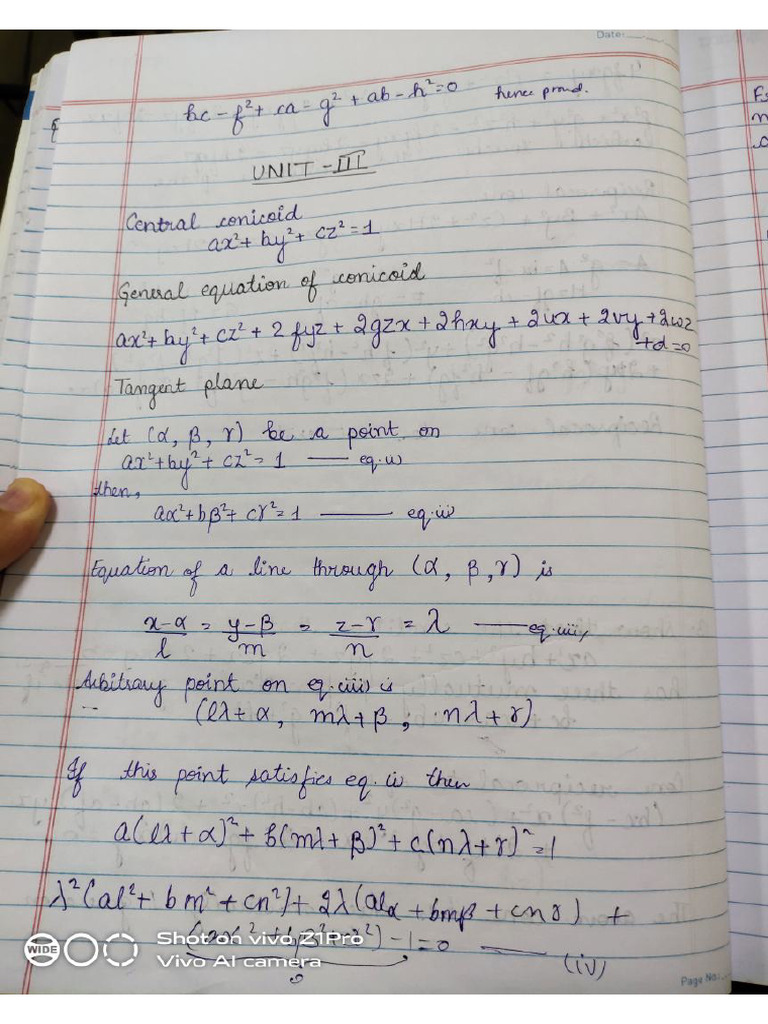 Date:
bc - f² + ca - g² + ab - h² = 0 hence proud.
UNIT - III
Central conicoid
ax² + by² + cz² = 1
General equation of conicoid
ax² + by² + cz² + 2fyz + 2gzx + 2hxy + 2ux + 2vy + 2wz
+d=0
Tangent plane
Let (α, β, r) be a point on
ax² + by² + cz² = 1 — eq.(i)
then,
aα² + bβ² + cr² = 1 — eq.(ii)
Equation of a line through (α, β, r) is
x-α/l = y-β/m = z-r/n = λ — eq.(iii)
Arbitrary point on eq.(iii) is
(lλ+α, mλ+β, nλ+r)
If this point satisfies eq.(i) then
a(lλ+α)² + b(mλ+β)² + c(nλ+r)² = 1
λ²(al² + bm² + cn²) + 2λ(alα + bmβ + cnr) +
(aα² + bβ² + cr²) - 1 = 0 — (iv)
WIDE
Shot on vivo Z1Pro
Vivo AI camera
Page No.: